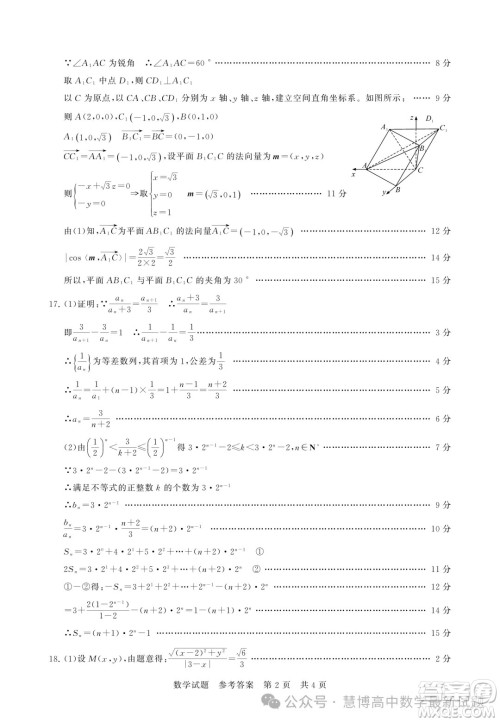 ∵∠A₁AC 为锐角　∴∠A₁AC=60° 8 分
取 A₁C₁ 中点 D₁,则 CD₁⊥A₁C₁
以 C 为原点,以 CA,CB,CD₁ 分别为 x 轴,y 轴,z 轴,建立空间直角坐标系。如图所示: 9 分
则 A(2,0,0),C₁(-1,0,√3),B(0,0,0)
A₁(1,0,√3)　B₁C₁=BC=(0,-1,0)
CC₁=AA₁=(-1,0,√3),设平面 B₁C₁C 的法向量为 m=(x,y,z)
则{-x+√3z=0 -y=0 ⇒取{x=√3 y=0 z=1　m=(√3,0,1) 11 分
由(1)知,A₁C为平面 AB₁C₁ 的法向量A₁C=(-1,0,-√3) 12 分
|cos⟨m,A₁C⟩|=2√3/(2×2)=√3/2 14 分
所以,平面 AB₁C₁ 与平面 B₁C₁C 的夹角为 30° 15 分
17.(1)证明:∵aₙ/(aₙ+3)=aₙ₊₁/3　∴(aₙ+3)/aₙ=3/aₙ₊₁
即3/aₙ₊₁-3/aₙ=1　∴1/aₙ₊₁-1/aₙ=1/3 2 分
∴{1/aₙ}为等差数列,其首项为 1,公差为1/3 4 分
∴1/aₙ=1/a₁+(n-1)×1/3=1+(n-1)/3=(n+2)/3 5 分
∴aₙ=3/(n+2) 6 分
(2)由(1/2)ⁿ<3/(k+2)≤(1/2)ⁿ⁻¹得 3·2ⁿ⁻¹-2≤k<3·2ⁿ-2,n∈N* 7 分
∵3·2ⁿ-2-(3·2ⁿ⁻¹-2)=3·2ⁿ⁻¹
∴满足不等式的正整数 k 的个数为 3·2ⁿ⁻¹
∴bₙ=3·2ⁿ⁻¹ 9 分
bₙ/aₙ=3·2ⁿ⁻¹·(n+2)/3=(n+2)·2ⁿ⁻¹ 10 分
Sₙ=3·2⁰+4·2¹+5·2²+…+(n+2)·2ⁿ⁻¹　①
2Sₙ=3·2¹+4·2²+…+(n+1)·2ⁿ⁻¹+(n+2)·2ⁿ　② 11 分
①-②得:-Sₙ=3+2¹+2²+…+2ⁿ⁻¹-(n+2)·2ⁿ 12 分
=3+2(1-2ⁿ⁻¹)/(1-2)-(n+2)·2ⁿ=1-(n+1)·2ⁿ 14 分
∴Sₙ=(n+1)·2ⁿ-1 15 分
18.(1)设 M(x,y),由题意得:√((x-2)²+y²)/|3-x|=√6/3 2 分
数学试题　参考答案　第 2 页　共 4 页
公众号·慧博高中数学最新试题